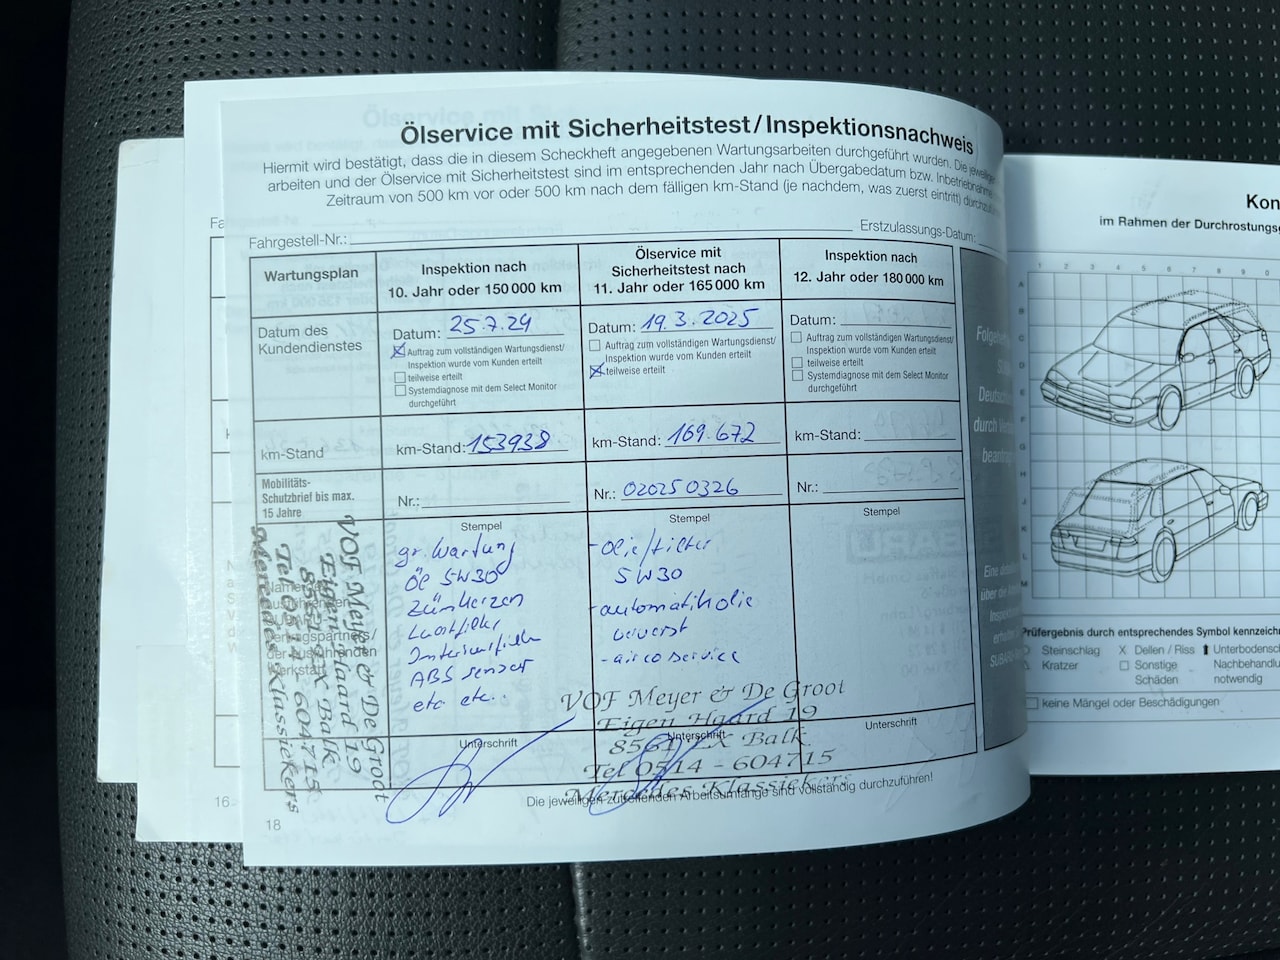 Ölservice mit Sicherheitstest/Inspektionsnachweis
Hiermit wird bestätigt, dass die in diesem Scheckheft angegebenen Wartungsarbeiten durchgeführt wurden. Die
arbeiten und der Ölservice mit Sicherheitstest sind im entsprechenden Jahr nach Übergabedatum bzw.
Zeitraum von 500 km vor oder 500 km nach dem fälligen km-Stand (je nachdem, was zuerst eintritt)
Fahrgestell-Nr.:
Erstzulassungs-Datum:
Wartungsplan
Inspektion nach
10. Jahr oder 150 000 km
Ölservice mit
Sicherheitstest nach
11. Jahr oder 165 000 km
Inspektion nach
12. Jahr oder 180 000 km
Datum des
Kundendienstes
Datum: 25.7.24
Auftrag zum vollständigen Wartungsdienst/
Inspektion wurde vom Kunden erteilt
teilweise erteilt
Systemdiagnose mit dem Select Monitor
durchgeführt
Datum: 19.3.2025
Auftrag zum vollständigen Wartungsdienst/
Inspektion wurde vom Kunden erteilt
teilweise erteilt
Datum:
Auftrag zum vollständigen Wartungsdienst/
Inspektion wurde vom Kunden erteilt
teilweise erteilt
Systemdiagnose mit dem Select Monitor
durchgeführt
km-Stand
km-Stand: 153938
km-Stand: 169.672
km-Stand:
Mobilitäts-
Schutzbrief bis max.
15 Jahre
Nr.:
Nr.: 020250326
Nr.:
Stempel
gr. Wartung
Öl 5W30
Zündkerzen
Luchtfilter
Interieurfilter
ABS sensor
etc etc..
Stempel
- olie/filter
5W30
- automatikolie
ververst
- airco service
Stempel
VOF Meyer & De Groot
Eigen Haard 19
8561 EX Balk
Tel 0514 - 604715
Mercedes Klassiekers
VOF Meyer & De Groot
Eigen Haard 19
8561 EX Balk
Tel 0514 - 604715
Mercedes Klassiekers
Unterschrift
Unterschrift
Unterschrift
Die jeweiligen zutreffenden Arbeitsumfänge sind vollständig durchzuführen!
18
16
Kon
im Rahmen der Durchrostungs
Prüfergebnis durch entsprechendes Symbol kennzeichn
Steinschlag
X Dellen / Riss
Unterbodensc
Kratzer
Sonstige
Schäden
Nachbehandlu
notwendig
keine Mängel oder Beschädigungen